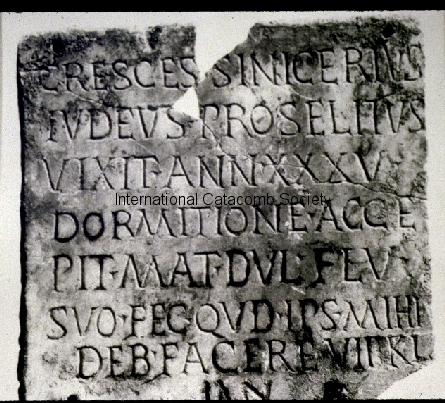 CRESCES SINICERIUS
IVDEVS·PROSELITVS
VIXIT·ANN·XXXV
International Catacomb Society
DORMITIONE·ACCE
PIT·MAT·DVL·F·EV
SVO·FEC·QVD·IPS·MIHI
DEB·FACERE·VIII·KL
IAN